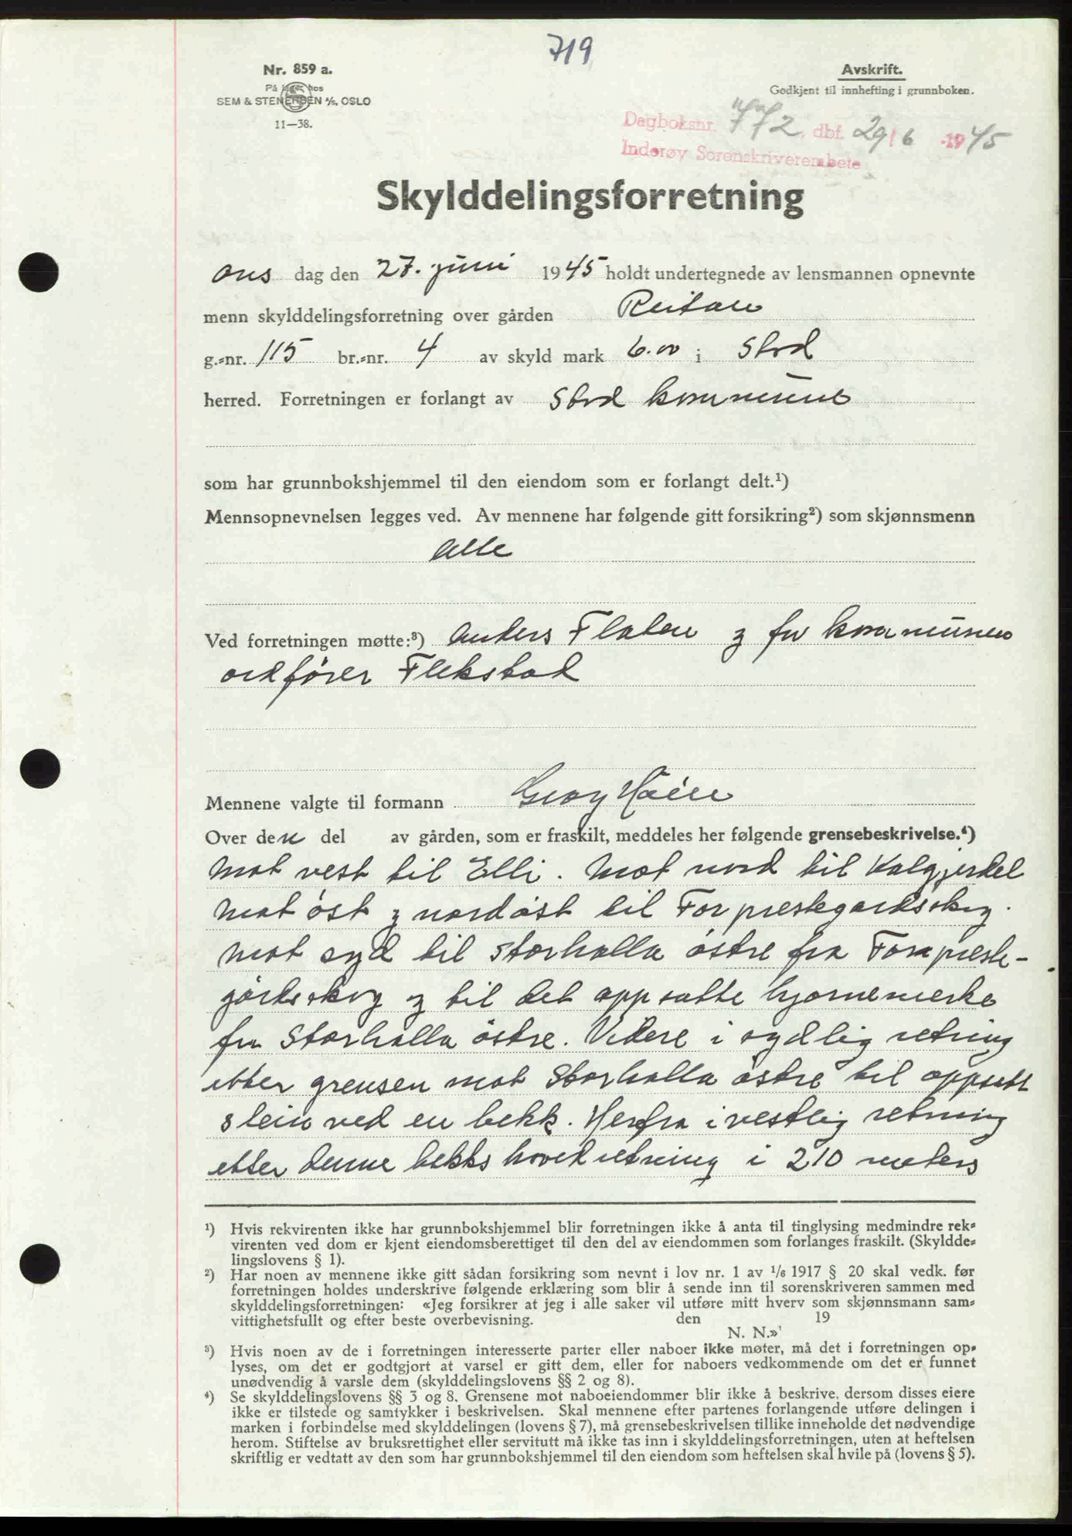 719
Nr. 859 a.
På lager hos
SEM & STENERSEN A/S, OSLO
11—38.
Avskrift.
Godkjent til innhefting i grunnboken.
Dagboksnr. 772, dbf. 29/6 -1945
Inderøy Sorenskriverembete
Skylddelingsforretning
ons dag den 27. juni 1945 holdt undertegnede av lensmannen opnevnte
menn skylddelingsforretning over gården Reitan
g.-nr. 115 br.-nr. 4 av skyld mark 6.00 i Stod
herred. Forretningen er forlangt av Stod kommune
som har grunnbokshjemmel til den eiendom som er forlangt delt.¹)
Mennsopnevnelsen legges ved. Av mennene har følgende gitt forsikring²) som skjønnsmenn
alle
Ved forretningen møtte:³) Anders Flaten og for kommunen
ordfører Flekstad
Mennene valgte til formann Georg
Over den del av gården, som er fraskilt, meddeles her følgende grensebeskrivelse.⁴)
Mot vest til Elli. Mot nord til Kalgjerdel
Mot øst og nordøst til For prestegardsskog.
Mot syd til Storhalla østre fra For preste-
gårdsskog og til det oppsatte hjørnemerke
fra Storhalla østre. Videre i sydlig retning
etter grensen mot Storhalla østre til oppsatt
stein ved en bekk. Herfra i vestlig retning
etter denne bekks hovedretning i 210 meters
¹) Hvis rekvirenten ikke har grunnbokshjemmel blir forretningen ikke å anta til tinglysing medmindre rek-
virenten ved dom er kjent eiendomsberettiget til den del av eiendommen som forlanges fraskilt. (Skyldde-
lingslovens § 1).
²) Har noen av mennene ikke gitt sådan forsikring som nevnt i lov nr. 1 av 1/6 1917 § 20 skal vedk. før
forretningen holdes underskrive følgende erklæring som blir å sende inn til sorenskriveren sammen med
skylddelingsforretningen: «Jeg forsikrer at jeg i alle saker vil utføre mitt hverv som skjønnsmann sam-
vittighetsfullt og efter beste overbevisning. den 19
N. N.»
³) Hvis noen av de i forretningen interesserte parter eller naboer ikke møter, må det i forretningen op-
lyses, om det er godtgjort at varsel er gitt dem, eller for naboers vedkommende om det er funnet
unødvendig å varsle dem (skylddelingslovens §§ 2 og 8).
⁴) Se skylddelingslovens §§ 3 og 8. Grensene mot naboeiendommer blir ikke å beskrive, dersom disses eiere
ikke er tilstede og samtykker i beskrivelsen. Skal mennene efter partenes forlangende utføre delingen i
marken i forbindelse med skylddelingen (lovens § 7), må grensebeskrivelsen tillike inneholde det nødvendige
herom. Stiftelse av bruksrettighet eller servitutt må ikke tas inn i skylddelingsforretningen, uten at heftelsen
skriftlig er vedtatt av den som har grunnbokshjemmel til den eiendom som heftelsen skal hvile på (lovens § 5).